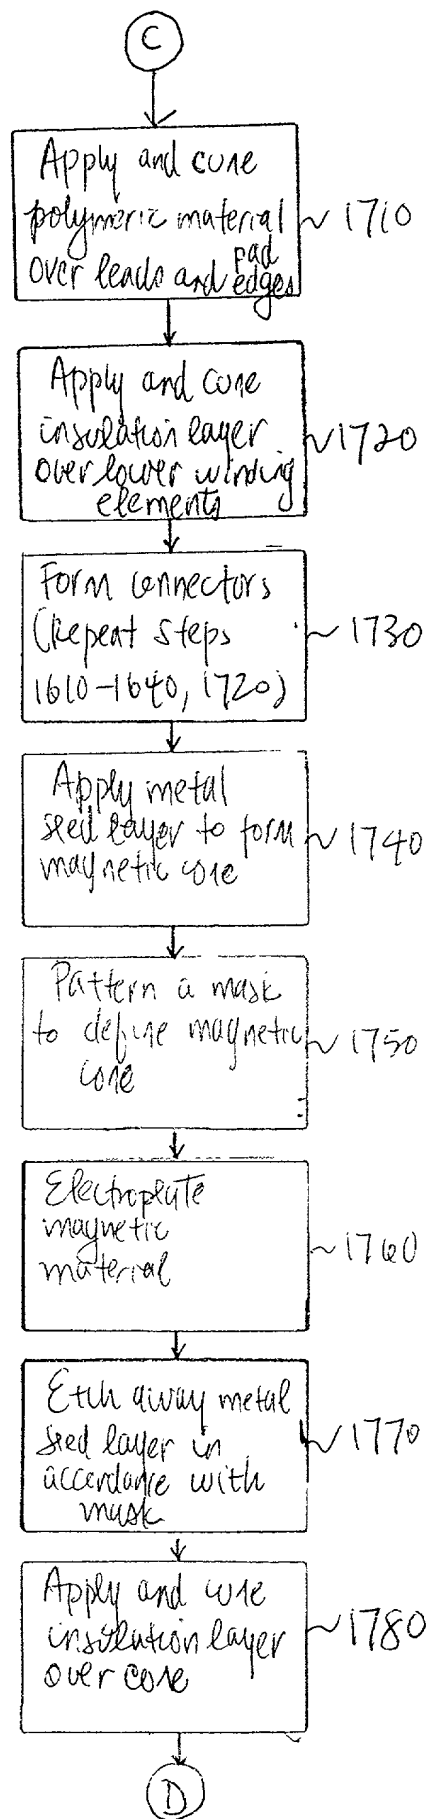 C
Apply and cure
polymeric material
over leads and pad
edges
1710
Apply and cure
insulation layer
over lower winding
elements
1720
Form connectors
(Repeat steps
1610-1640, 1720)
1730
Apply metal
seed layer to form
magnetic core
1740
Pattern a mask
to define magnetic
core
1750
Electroplate
magnetic
material
1760
Etch away metal
seed layer in
accordance with
mask
1770
Apply and cure
insulation layer
over core
1780
D